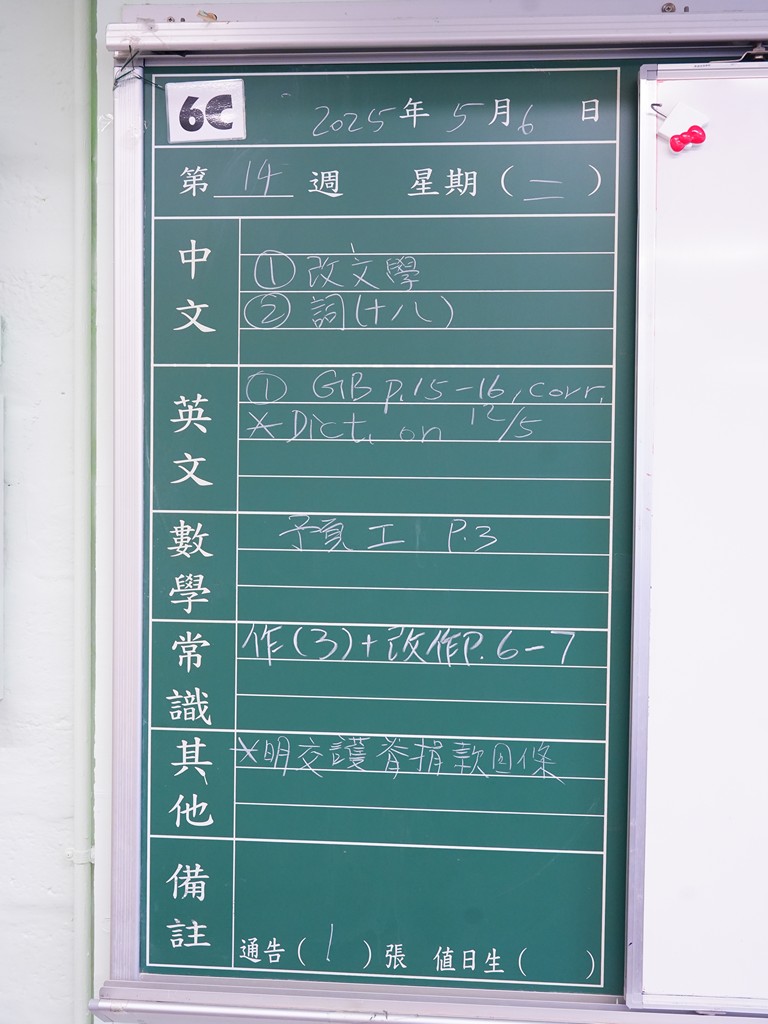 6C
2025年 5月6日
第 14 週 星期(二)
中文
① 改文學
② 詞(十八)
英文
① GB p.15-16, corr.
*Dict. on 12/5
數學
預工 P.3
常識
作(3)+改作P.6-7
其他
*明交護脊捐款回條
備註
通告(1)張 值日生( )